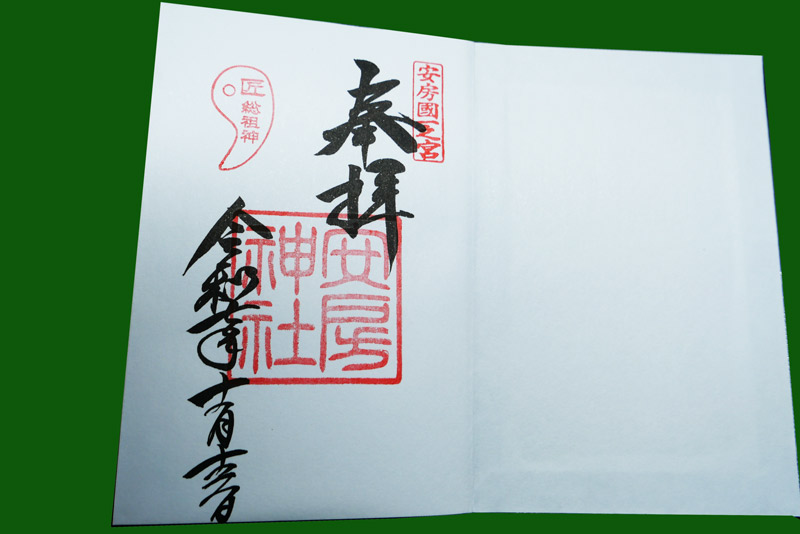 安房國一之宮
奉拝
安房
神社
匠
総祖神
令和七年十月 日